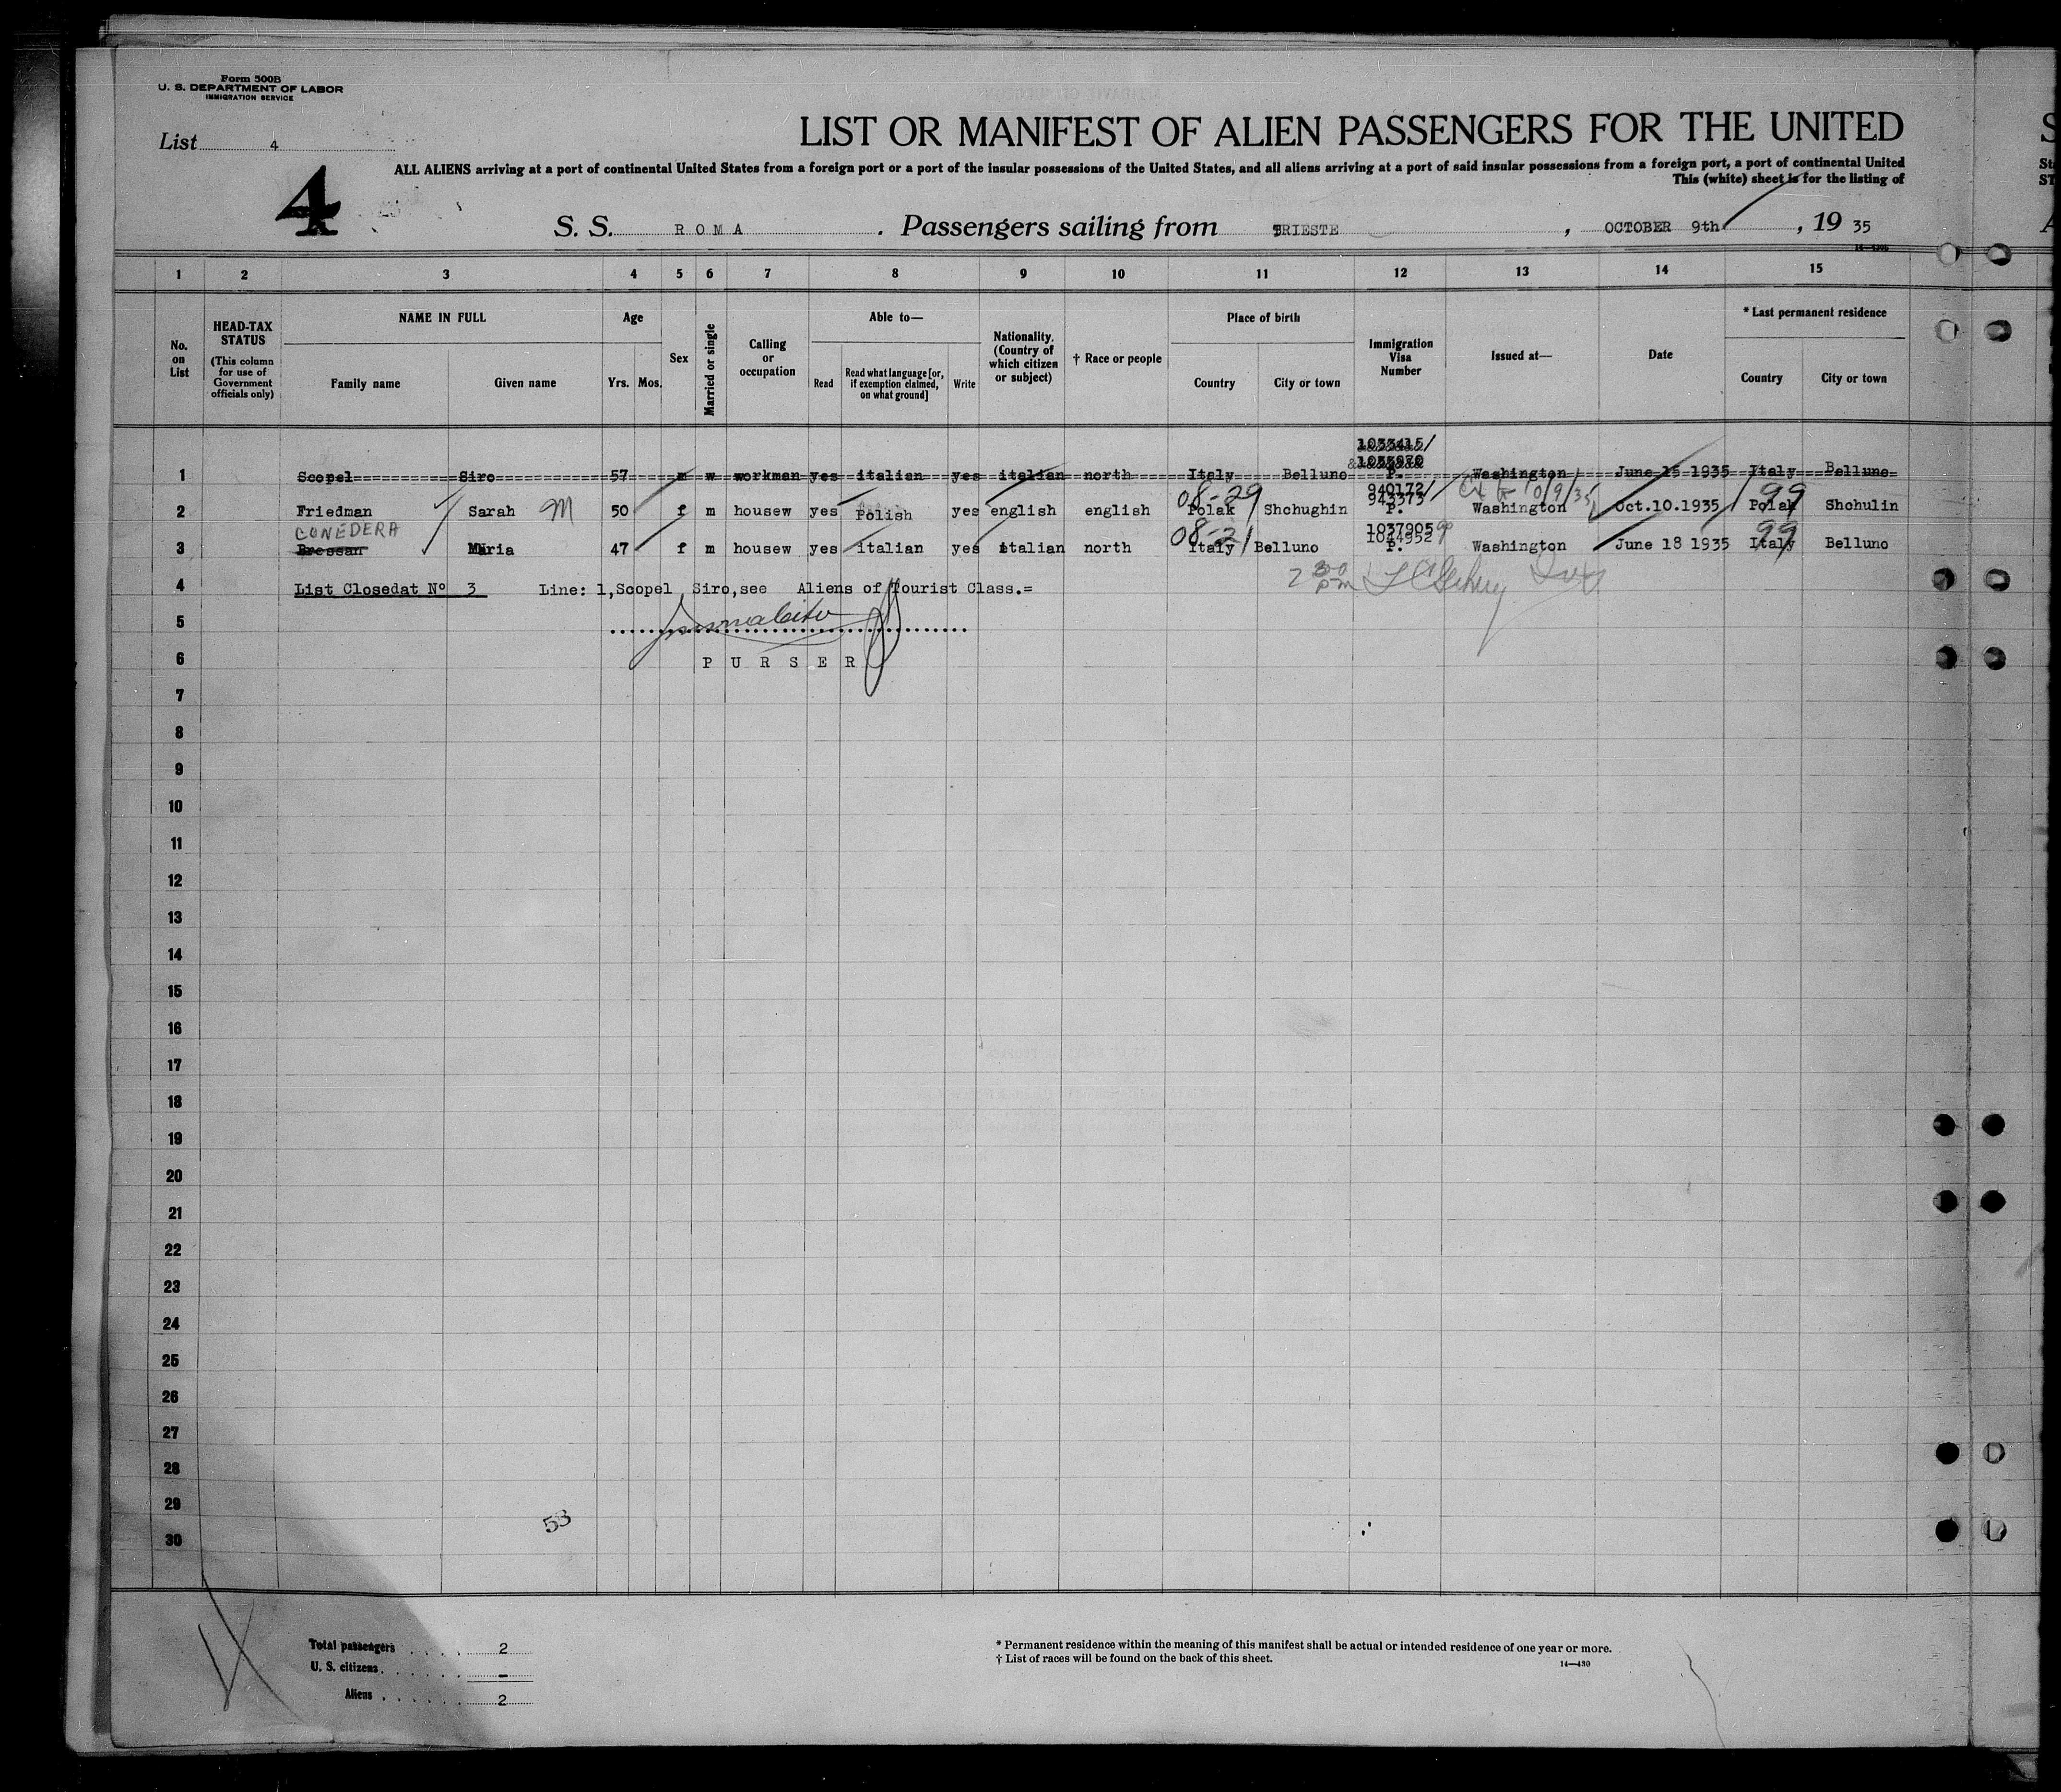 Form 500B
U. S. DEPARTMENT OF LABOR
IMMIGRATION SERVICE
List 4
4
LIST OR MANIFEST OF ALIEN PASSENGERS FOR THE UNITED
ALL ALIENS arriving at a port of continental United States from a foreign port or a port of the insular possessions of the United States, and all aliens arriving at a port of said insular possessions from a foreign port, a port of continental United
This (white) sheet is for the listing of
S. S. ROMA . Passengers sailing from TRIESTE , OCTOBER 9th , 19 35
1 2 3 4 5 6 7 8 9 10 11 12 13 14 15
No. on List
HEAD-TAX STATUS
(This column for use of Government officials only)
NAME IN FULL
Family name Given name
Age
Yrs. Mos.
Sex
Married or single
Calling or occupation
Able to—
Read
Read what language [or, if exemption claimed, on what ground]
Write
Nationality. (Country of which citizen or subject)
† Race or people
Place of birth
Country City or town
Immigration Visa Number
Issued at—
Date
* Last permanent residence
Country City or town
1 Scopel Siro 57 m w workman yes italian yes italian north Italy Belluno P. Washington June 15 1935 Italy Belluno
940172/
08-29 99
2 Friedman Sarah M 50 f m housew yes Polish yes english english Polak Shchughin 943373 P. Washington Oct.10.1935 Polak Shchulin
CONEDERA
1037905
08-21 99
3 Bressan Maria 47 f m housew yes italian yes italian north Italy Belluno 1044952 P. Washington June 18 1935 Italy Belluno
4 List Closedat Nº 3 Line: 1,Scopel , Siro,see Aliens of Tourist Class.=
2 30 pm
5
6 PURSER
7
8
9
10
11
12
13
14
15
16
17
18
19
20
21
22
23
24
25
26
27
28
29
53
30
Total passengers 2
U. S. citizens –
Aliens 2
* Permanent residence within the meaning of this manifest shall be actual or intended residence of one year or more.
† List of races will be found on the back of this sheet.
14—430